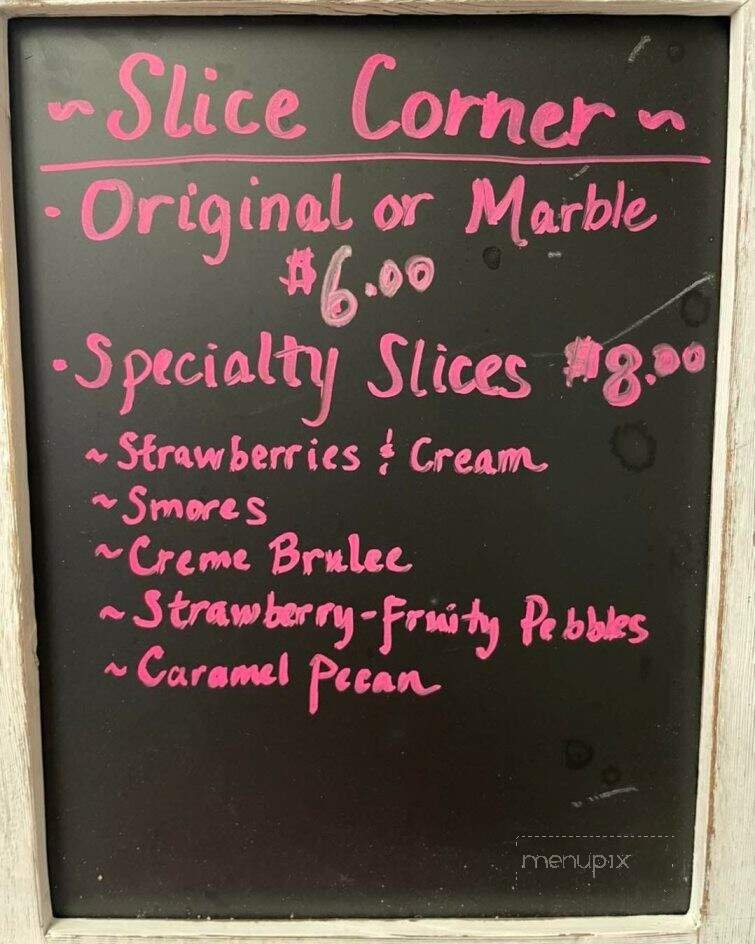 ~ Slice Corner ~
· Original or Marble
$6.00
· Specialty Slices $8.00
~ Strawberries & Cream
~ Smores
~ Creme Brulee
~ Strawberry-Fruity Pebbles
~ Caramel Pecan
menupix